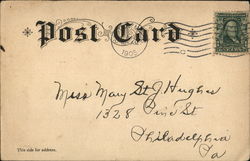 Post Card
1905
Miss Mary St J Hughes
1328 Pine St
Philadelphia
Pa
This side for address.